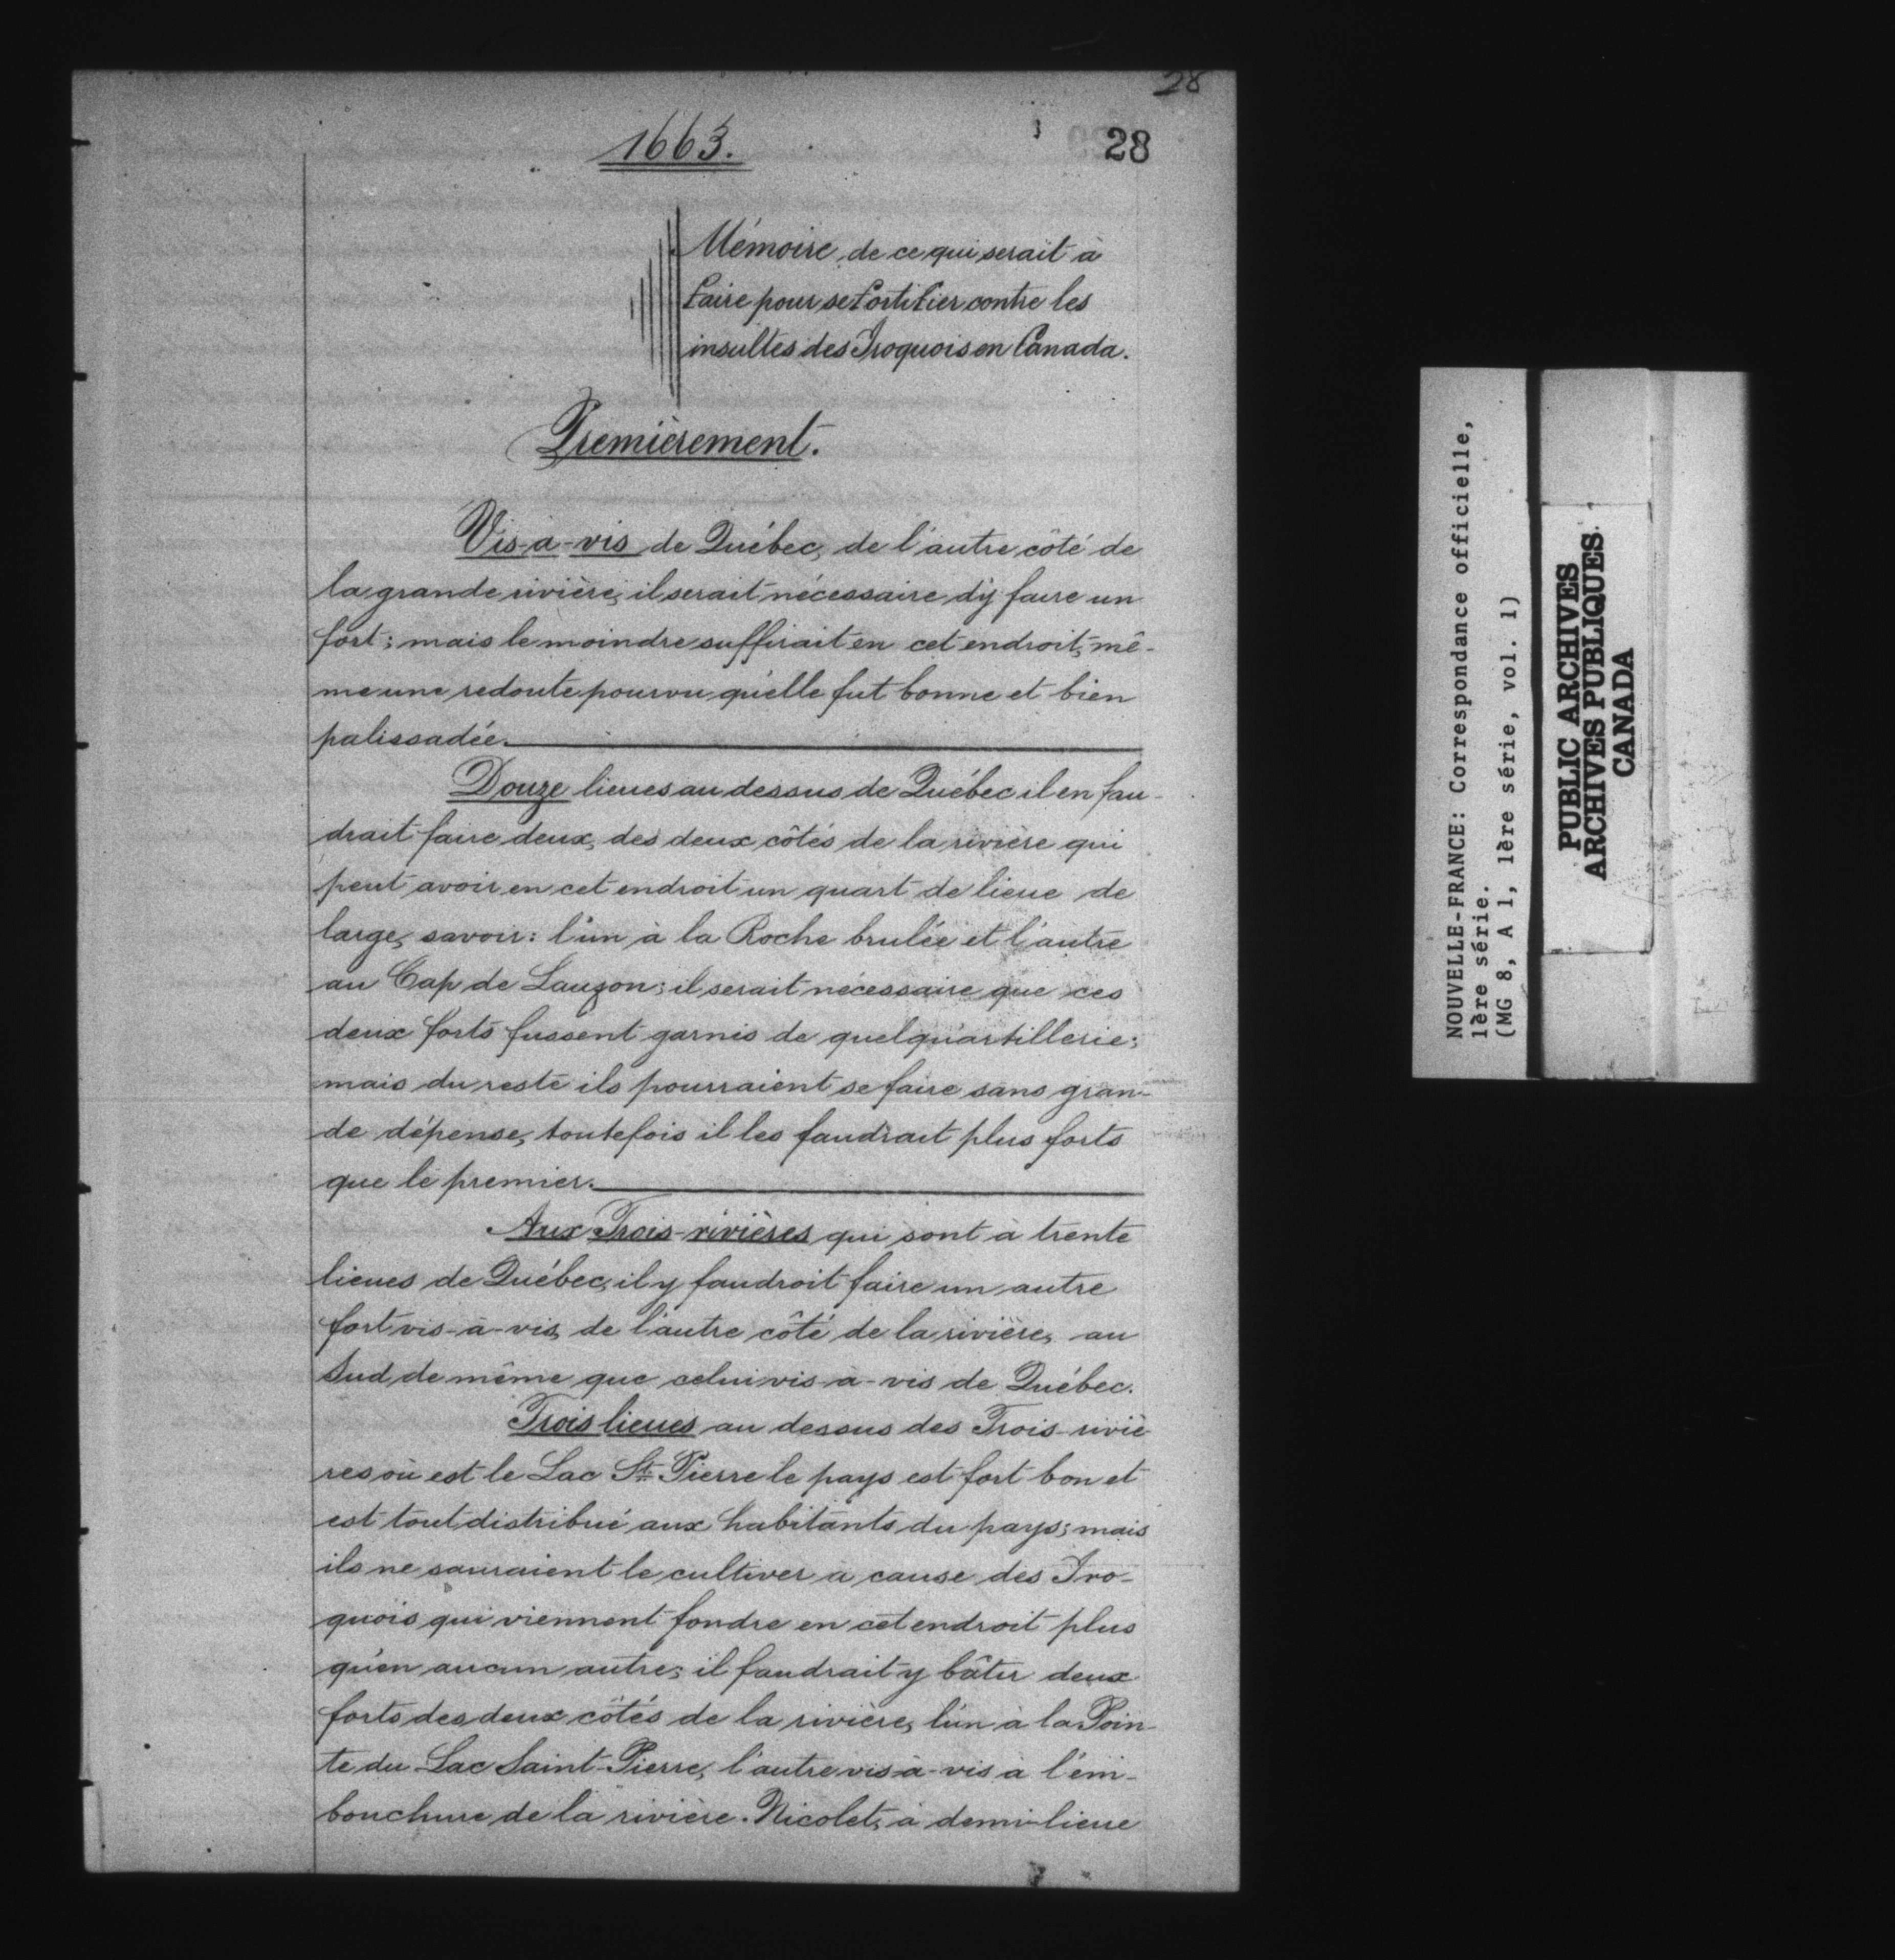 28
1663.
28
Mémoire de ce qui serait à
faire pour se fortifier contre les
insultes des Iroquois en Canada.
Premièrement.
Vis-à-vis de Québec, de l'autre côté de
la grande rivière, il serait nécessaire d'y faire un
fort; mais le moindre suffirait en cet endroit, mê-
me une redoute pourvu qu'elle fut bonne et bien
palissadée.
Douze lieues au dessus de Québec il en fau-
drait faire deux, des deux côtés de la rivière qui
peut avoir en cet endroit un quart de lieue de
large, savoir: l'un à la Roche brulée et l'autre
au Cap de Lauzon; il serait nécessaire que ces
deux forts fussent garnis de quelqu'artillerie;
mais du reste ils pourraient se faire sans gran-
de dépense, toutefois il les faudrait plus forts
que le premier.
Aux Trois-rivières qui sont à trente
lieues de Québec, il y faudroit faire un autre
fort vis-à-vis, de l'autre côté de la rivière, au
Sud, de même que celui vis-à-vis de Québec.
Trois lieues au dessus des Trois-riviè-
res où est le Lac St. Pierre le pays est fort bon et
est tout distribué aux habitants du pays; mais
ils ne sauraient le cultiver à cause des Iro-
quois qui viennent fondre en cet endroit plus
qu'en aucun autre; il faudrait y bâtir deux
forts des deux côtés de la rivière, l'un à la Poin-
te du Lac Saint-Pierre, l'autre vis-à-vis à l'em-
bouchure de la rivière Nicolet, à demi-lieue
NOUVELLE-FRANCE: Correspondance officielle,
1ère série.
(MG 8, A 1, 1ère série, vol. 1)
PUBLIC ARCHIVES
ARCHIVES PUBLIQUES
CANADA